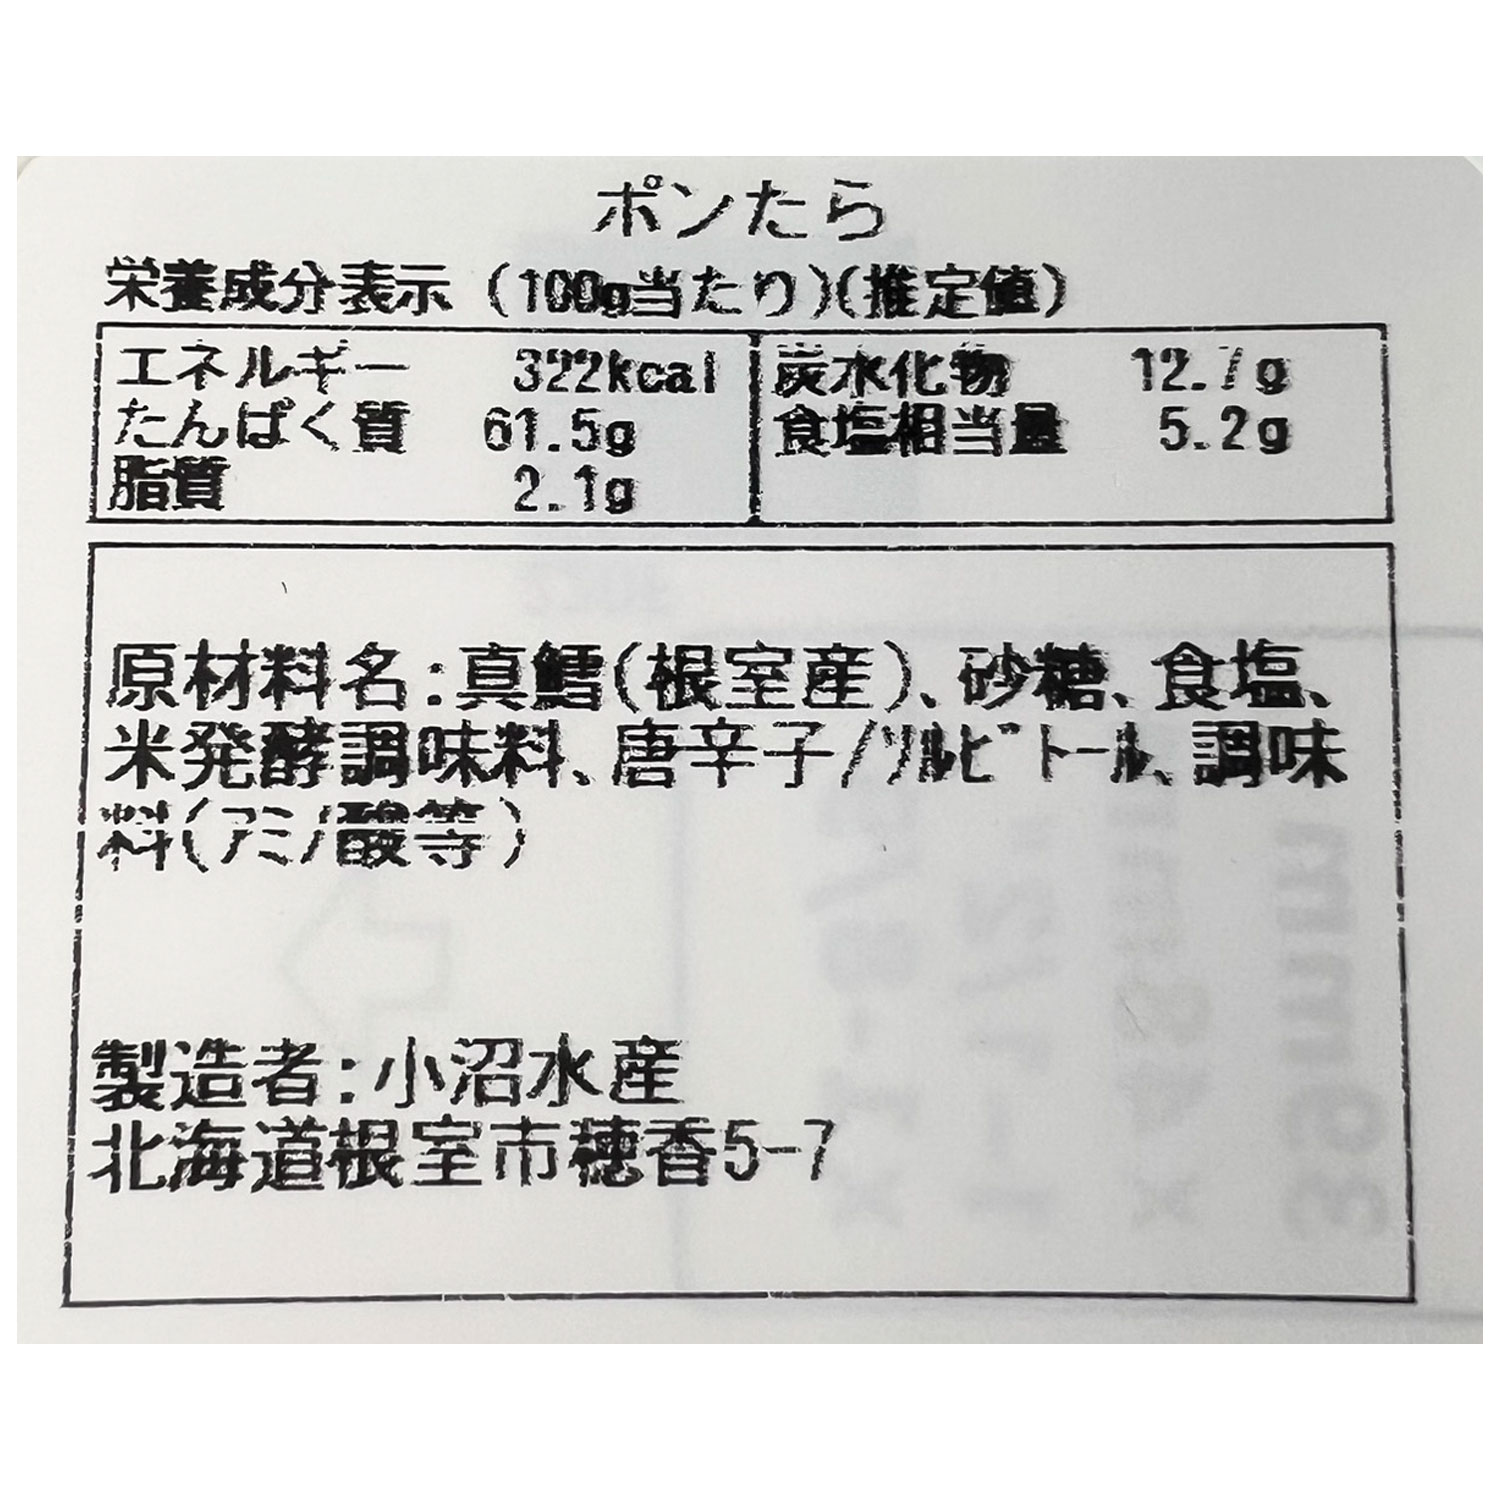 ポンたら
栄養成分表示(100g当たり)(推定値)
エネルギー 322kcal
たんぱく質 61.5g
脂質 2.1g
炭水化物 12.7g
食塩相当量 5.2g
原材料名:真鱈(根室産)、砂糖、食塩、
米発酵調味料、唐辛子/ｿﾙﾋﾞﾄｰﾙ、調味
料(ｱﾐﾉ酸等)
製造者:小沼水産
北海道根室市穂香5-7